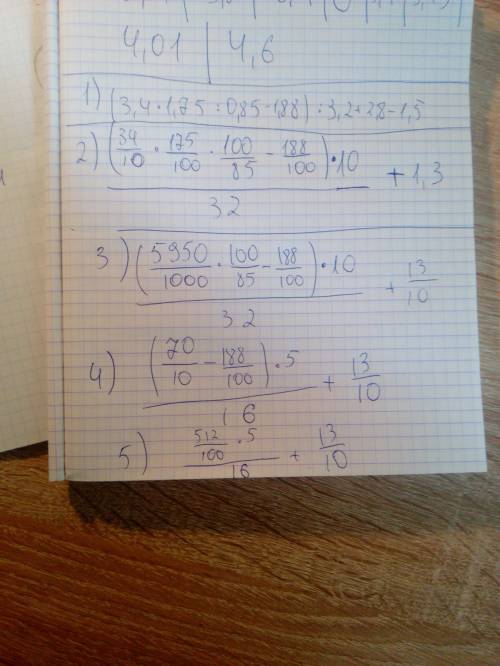 4,01 | 4,6
1) (3,4 · 1,75 : 0,85 - 1,88) : 3,2 + 2,8 - 1,5
2) (34/10 · 175/100 · 100/85 - 188/100) · 10 / 32 + 1,3
3) (5950/1000 · 100/85 - 188/100) · 10 / 32 + 13/10
4) (70/10 - 188/100) · 5 / 16 + 13/10
5) 512/100 · 5 / 16 + 13/10